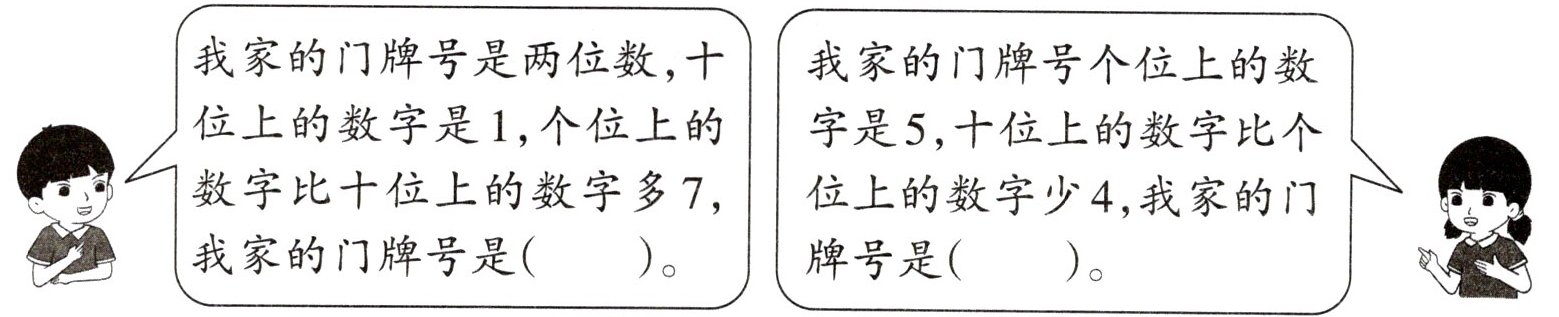 我家的门牌号是两位数,十
位上的数字是1,个位上的
数字比十位上的数字多7,
我家的门牌号是(  )。
我家的门牌号个位上的数
字是5,十位上的数字比个
位上的数字少4,我家的门
牌号是(  )。